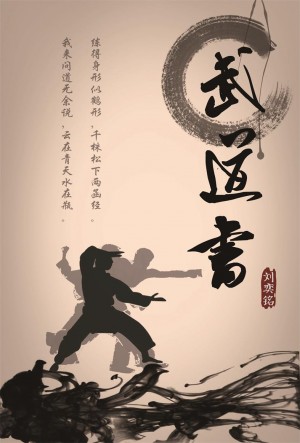 武道書
刘奕铭
練得身形似鶴形，千株松下两函經。
我来问道无余说，云在青天水在瓶。